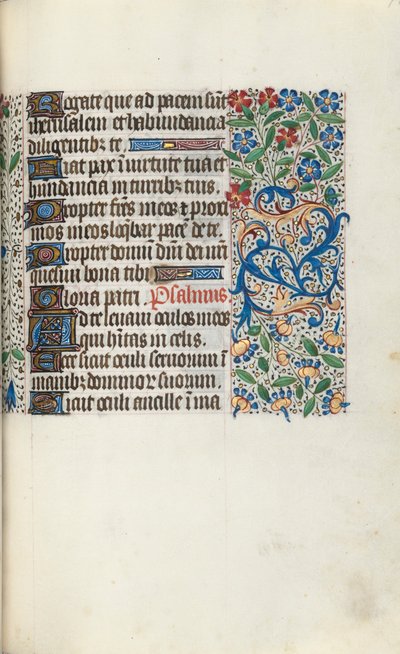 Rogate que ad pacem sūt
iherusalem et habundancia
diligentibz te.
Fiat pax ī uirtute tua et
bundancia in turribz tuis.
Propter fr̄es meos ⁊ proxi
mos meos loq̄bar pacē de te.
Propter domum dn̄i dei nr̄i
quesiui bona tibi
Gloria patri. Psalmus.
Ad te leuaui oculos meos
qui h̄itas in celis.
Ecce sicut oculi seruorum ī
manibz dominorꝝ suorum.
Sicut oculi ancille ī ma